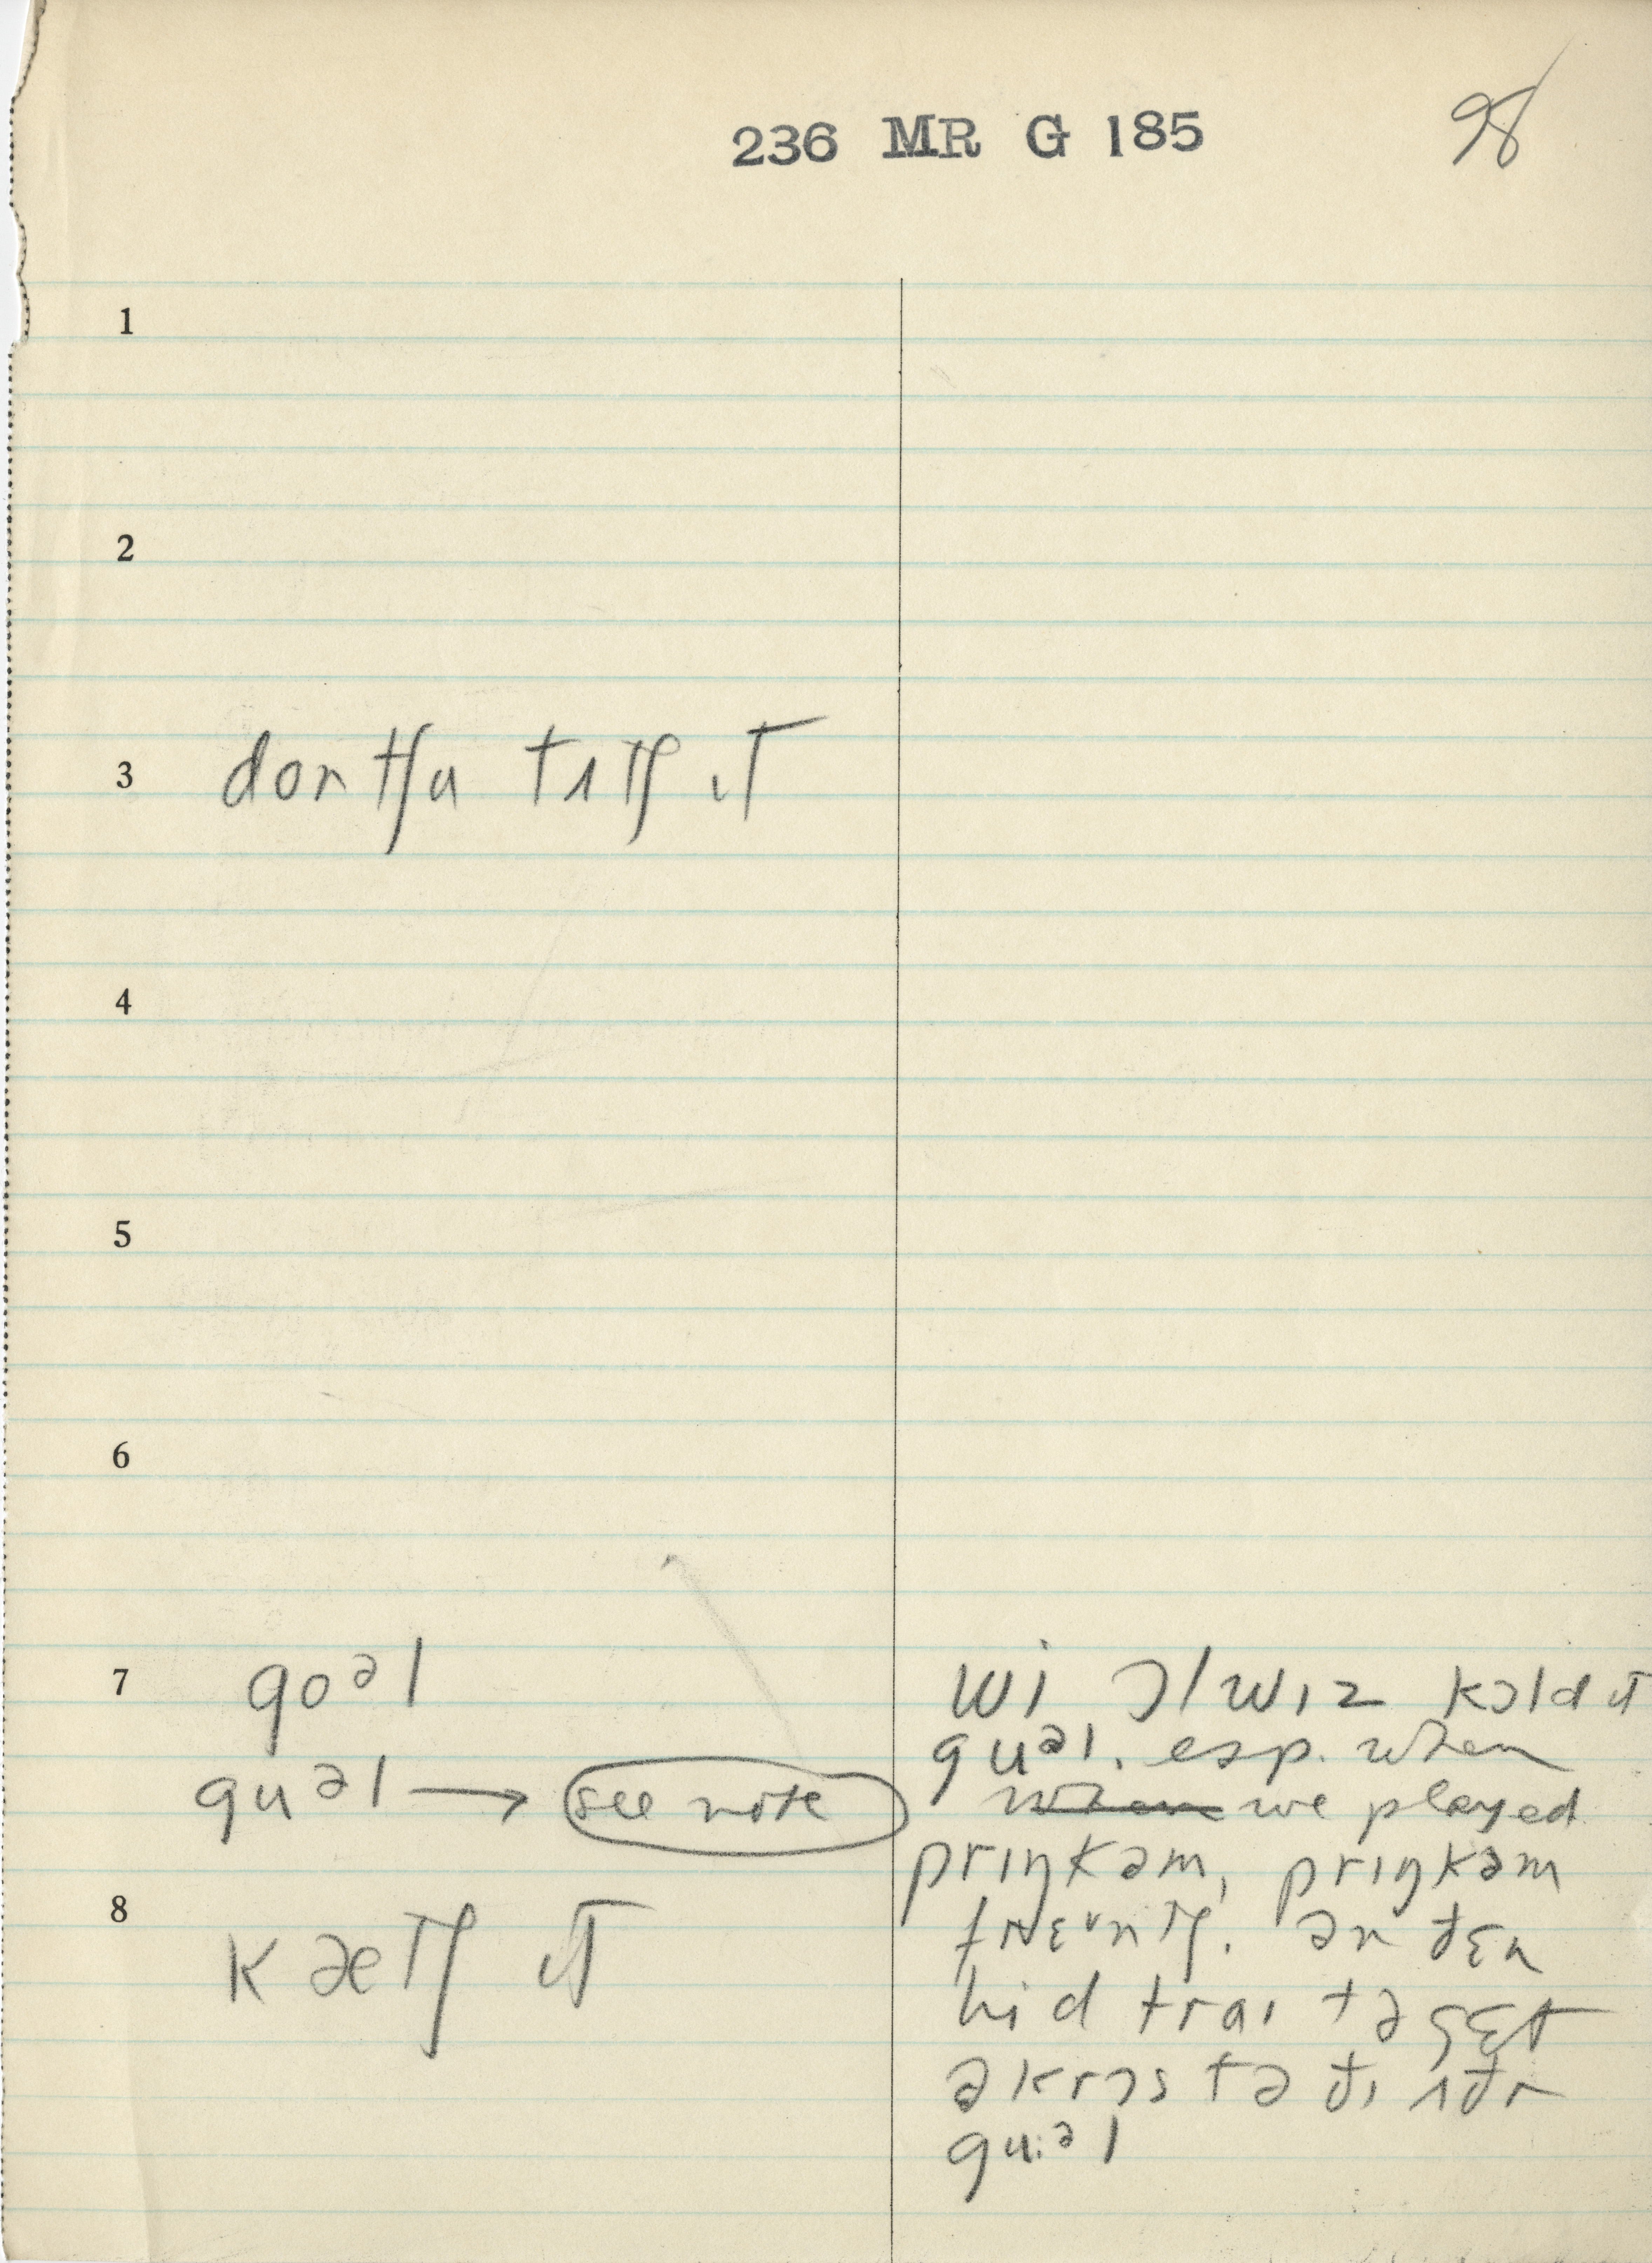 236 MR G 185
98
1
2
3 dontʃu tʌtʃ ɪt
4
5
6
7 goᵊl
guᵊl → see note
8 kætʃ ɪt
wi ɔlwɪz kɔld ɪt
guᵊl. esp. when
when we played
prɪŋkəm, prɪŋkəm
ən ðɛn
hid traɪ tə gɛt
əkrɔs tə ðɪ ʌðr
gu:ᵊl